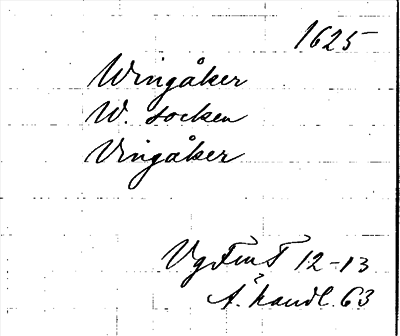 1625
Wingåker
W. socken
Vingåker
VgFmT 12-13
A. handl. 63